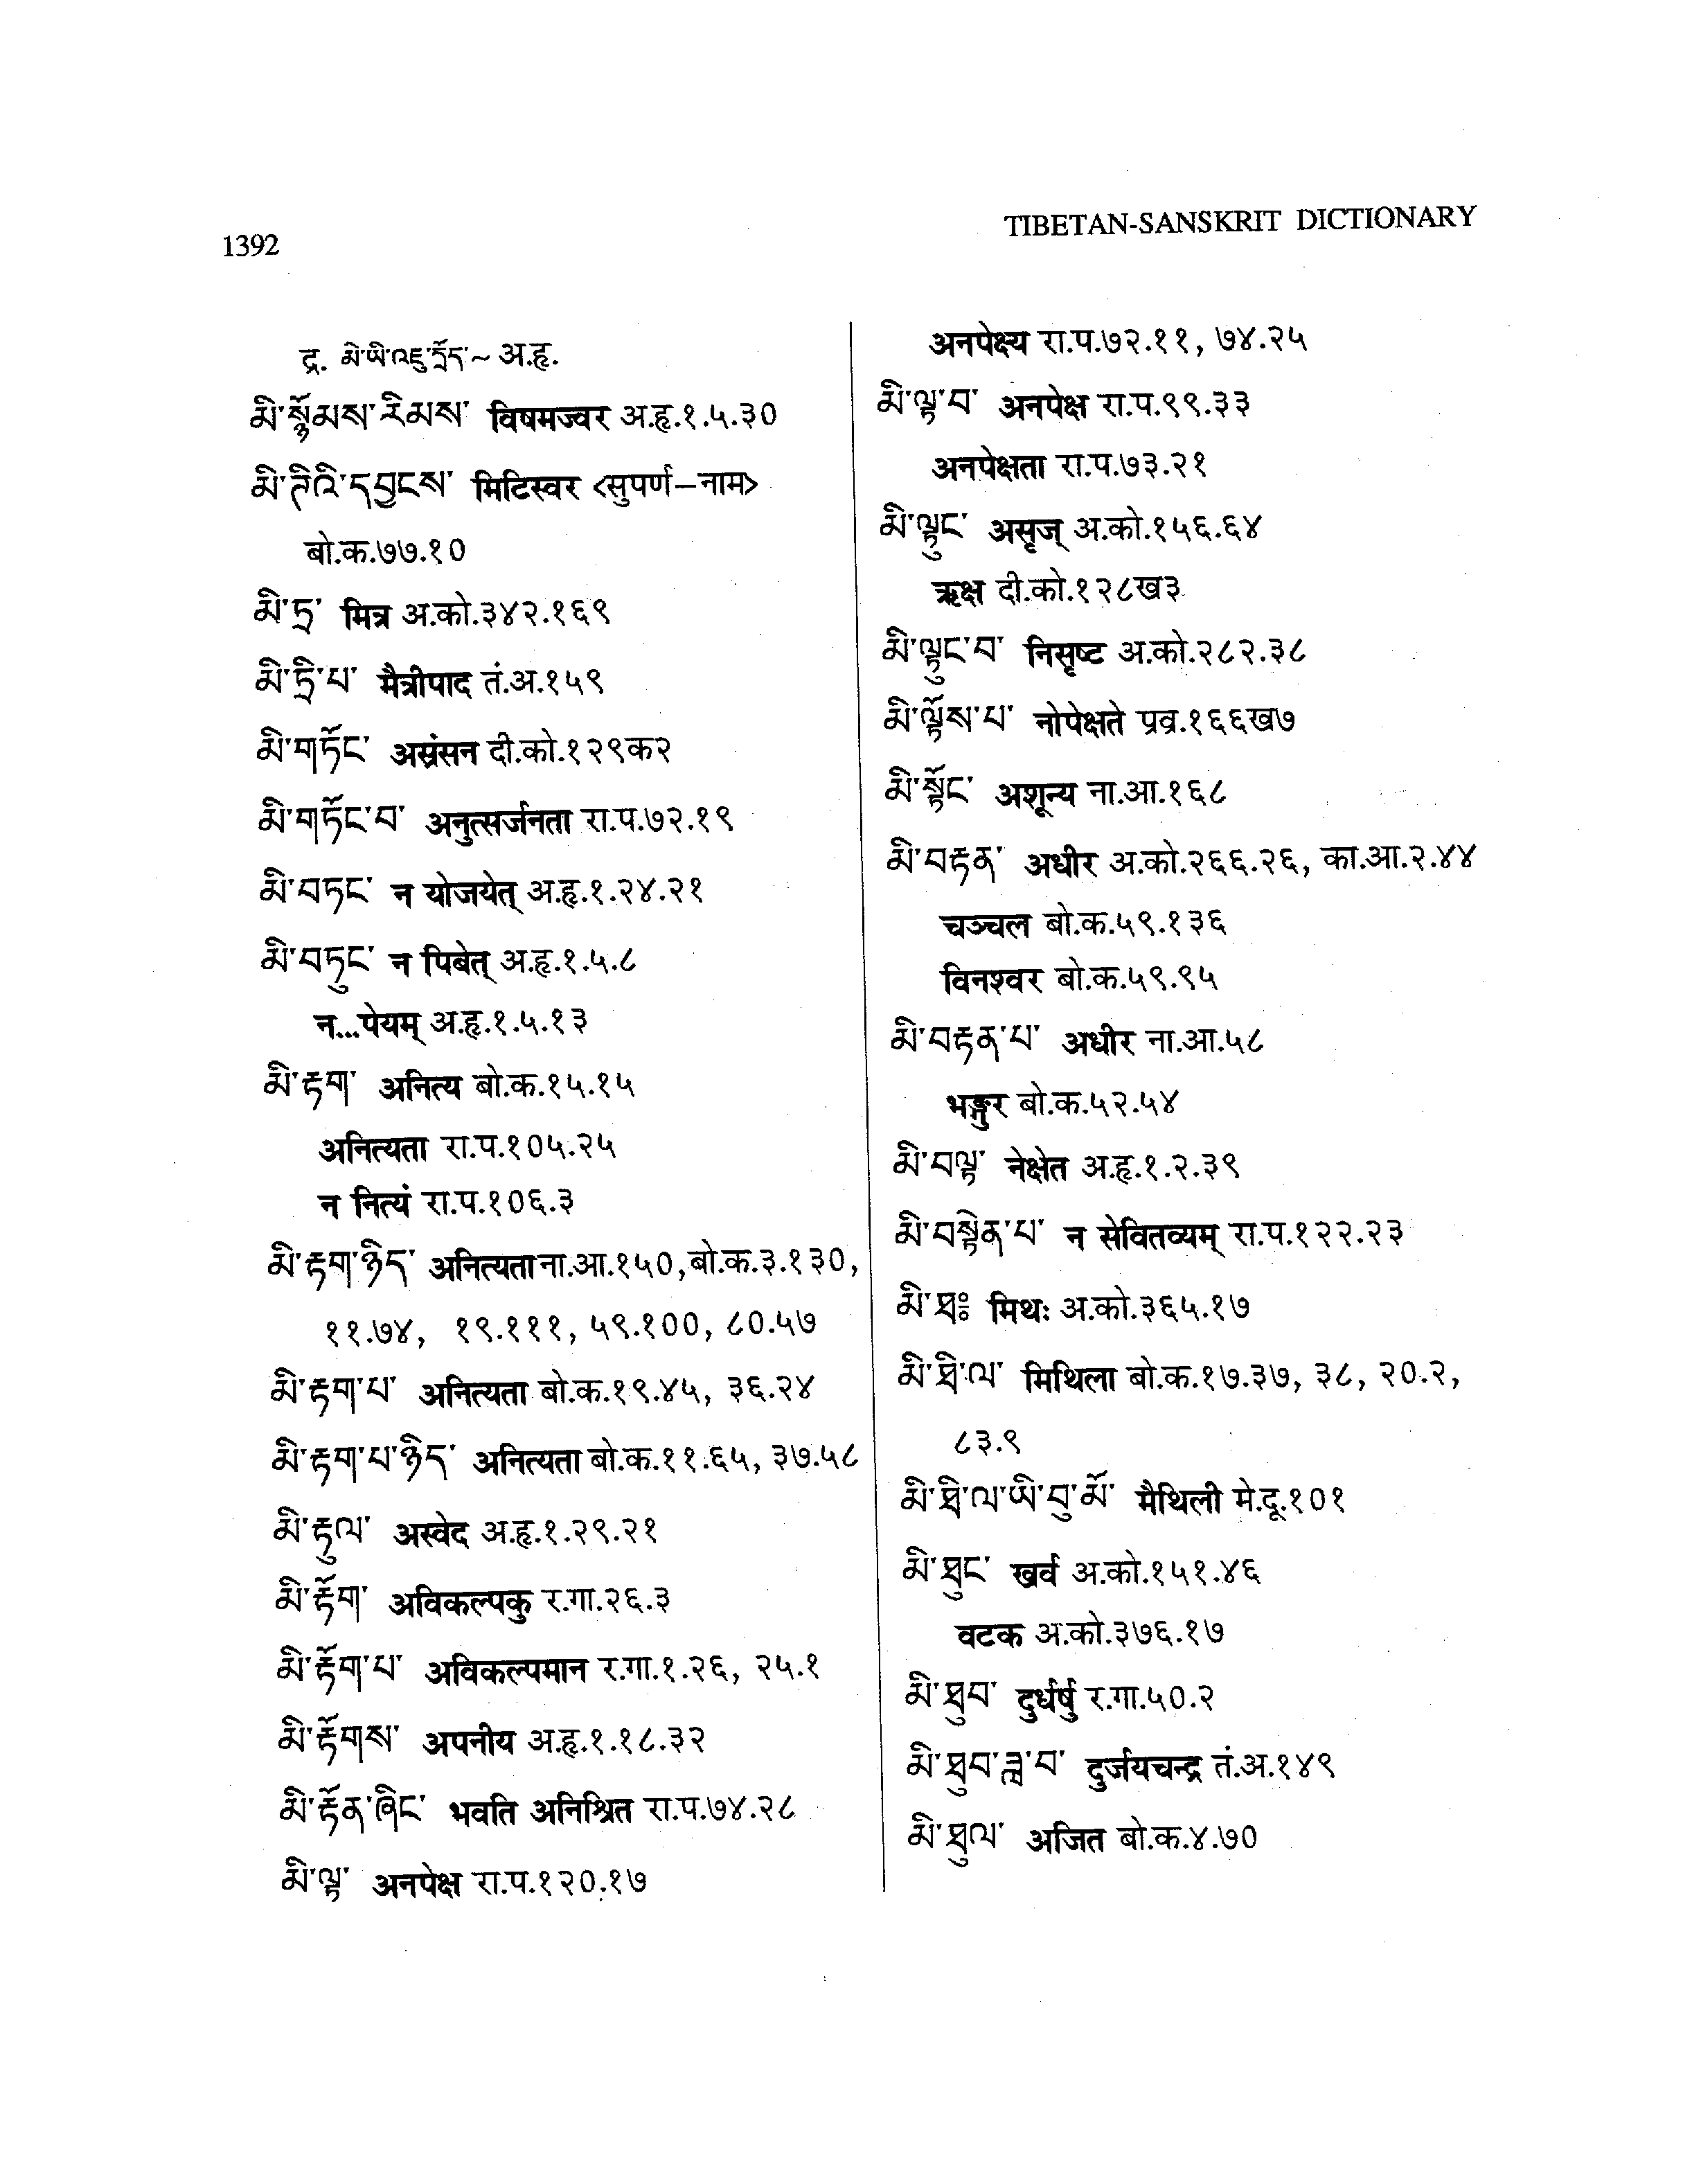 1392
TIBETAN-SANSKRIT DICTIONARY
द्र. མི་ཡི་འཇུ་དྲོད་~ अ.हृ.
མི་སྙོམས་རིམས་ विषमज्वर अ.हृ.१.५.३0
མི་ཊིའི་དབྱངས་ मिटिस्वर <सुपर्ण–नाम>
बो.क.७७.१0
མི་ཏྲ་ मित्र अ.को.३४२.१६९
མི་ཏྲི་པ་ मैत्रीपाद तं.अ.१५९
མི་གཏོང་ अस्रंसन दी.को.१२९क२
མི་གཏོང་བ་ अनुत्सर्जनता रा.प.७२.१९
མི་བཏང་ न योजयेत् अ.हृ.१.२४.२१
མི་བཏུང་ न पिबेत् अ.हृ.१.५.८
न...पेयम् अ.हृ.१.५.१३
མི་རྟག་ अनित्य बो.क.१५.१५
अनित्यता रा.प.१0५.२५
न नित्यं रा.प.१0६.३
མི་རྟག་ཉིད་ अनित्यता ना.आ.१५0, बो.क.३.१३0,
११.७४, १९.१११, ५९.१00, ८0.५७
མི་རྟག་པ་ अनित्यता बो.क.१९.४५, ३६.२४
མི་རྟག་པ་ཉིད་ अनित्यता बो.क.११.६५, ३७.५८
མི་རྟུལ་ अस्वेद अ.हृ.१.२९.२१
མི་རྟོག་ अविकल्पकु र.गा.२६.३
མི་རྟོག་པ་ अविकल्पमान र.गा.१.२६, २५.१
མི་རྟོགས་ अपनीय अ.हृ.१.१८.३२
མི་རྟོན་ཞིང་ भवति अनिश्रित रा.प.७४.२८
མི་ལྟ་ अनपेक्ष रा.प.१२0.१७
अनपेक्ष्य रा.प.७२.११, ७४.२५
མི་ལྟ་བ་ अनपेक्ष रा.प.९९.३३
अनपेक्षता रा.प.७३.२१
མི་ལྟུང་ असृज् अ.को.१५६.६४
ऋक्ष दी.को.१२८ख३
མི་ལྟུང་བ་ निसृष्ट अ.को.२८२.३८
མི་ལྟོས་པ་ नोपेक्षते प्रव्र.१६६ख७
མི་སྟོང་ अशून्य ना.आ.१६८
མི་བརྟན་ अधीर अ.को.२६६.२६, का.आ.२.४४
चञ्चल बो.क.५९.१३६
विनश्वर बो.क.५९.९५
མི་བརྟན་པ་ अधीर ना.आ.५८
भङ्गुर बो.क.५२.५४
མི་བལྟ་ नेक्षेत अ.हृ.१.२.३९
མི་བསྟེན་པ་ न सेवितव्यम् रा.प.१२२.२३
མི་ཐཿ मिथः अ.को.३६५.१७
མི་ཐི་ལ་ मिथिला बो.क.१७.३७, ३८, २0.२,
८३.९
མི་ཐི་ལ་ཡི་བུ་མོ་ मैथिली मे.दू.१0१
མི་ཐུང་ खर्व अ.को.१५१.४६
वटक अ.को.३७६.१७
མི་ཐུབ་ दुर्धर्षु र.गा.५0.२
མི་ཐུབ་ཟླ་བ་ दुर्जयचन्द्र तं.अ.१४९
མི་ཐུལ་ अजित बो.क.४.७0